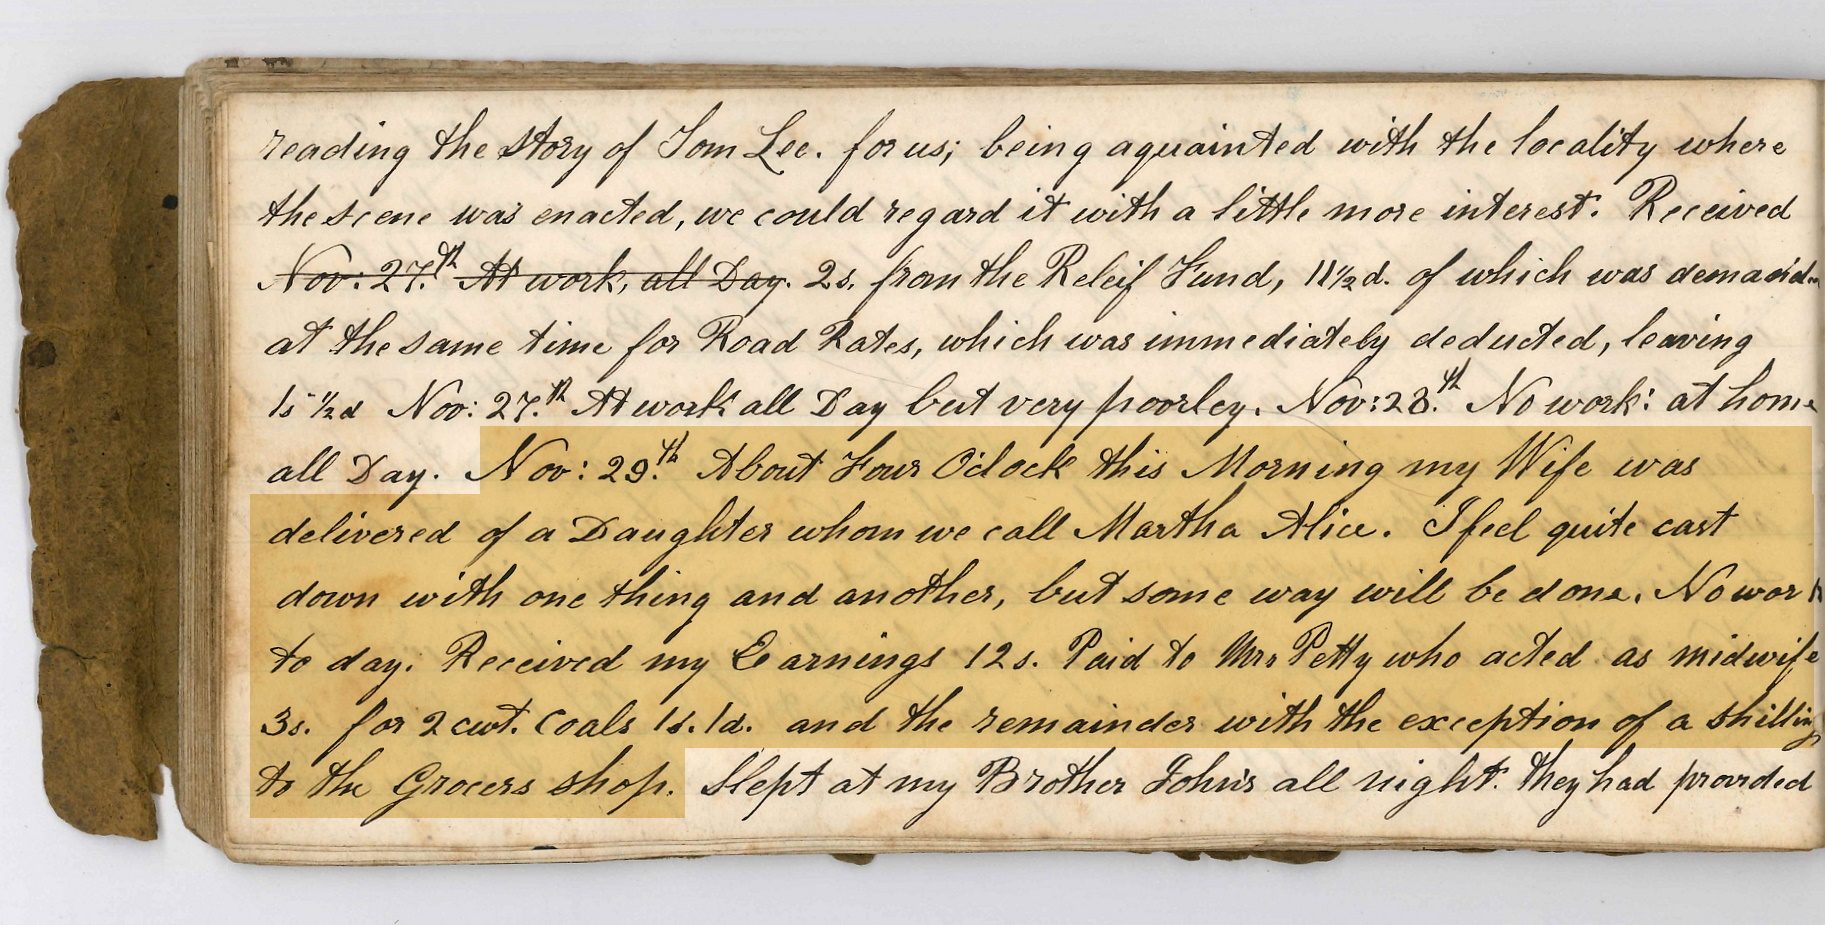 reading the story of Tom Lee. for us; being aquainted with the locality where
the scene was enacted, we could regard it with a little more interest. Received
Nov: 27.th At work, all Day. 2s. from the Releif Fund, 11½d. of which was demand
at the same time for Road Rates, which was immediately deducted, leaving
1s ½d Nov: 27.th At work all Day but very poorley. Nov: 28.th No work: at home
all Day. Nov: 29.th About Four O'clock this Morning my Wife was
delivered of a Daughter whom we call Martha Alice. I feel quite cast
down with one thing and another, but some way will be done. No work
to day. Received my Earnings 12s. Paid to Mrs Petty who acted as midwife
3s. for 2 cwt. Coals 1s. 1d. and the remainder with the exception of a shilling
to the Grocers shop. Slept at my Brother John's all night. they had provided